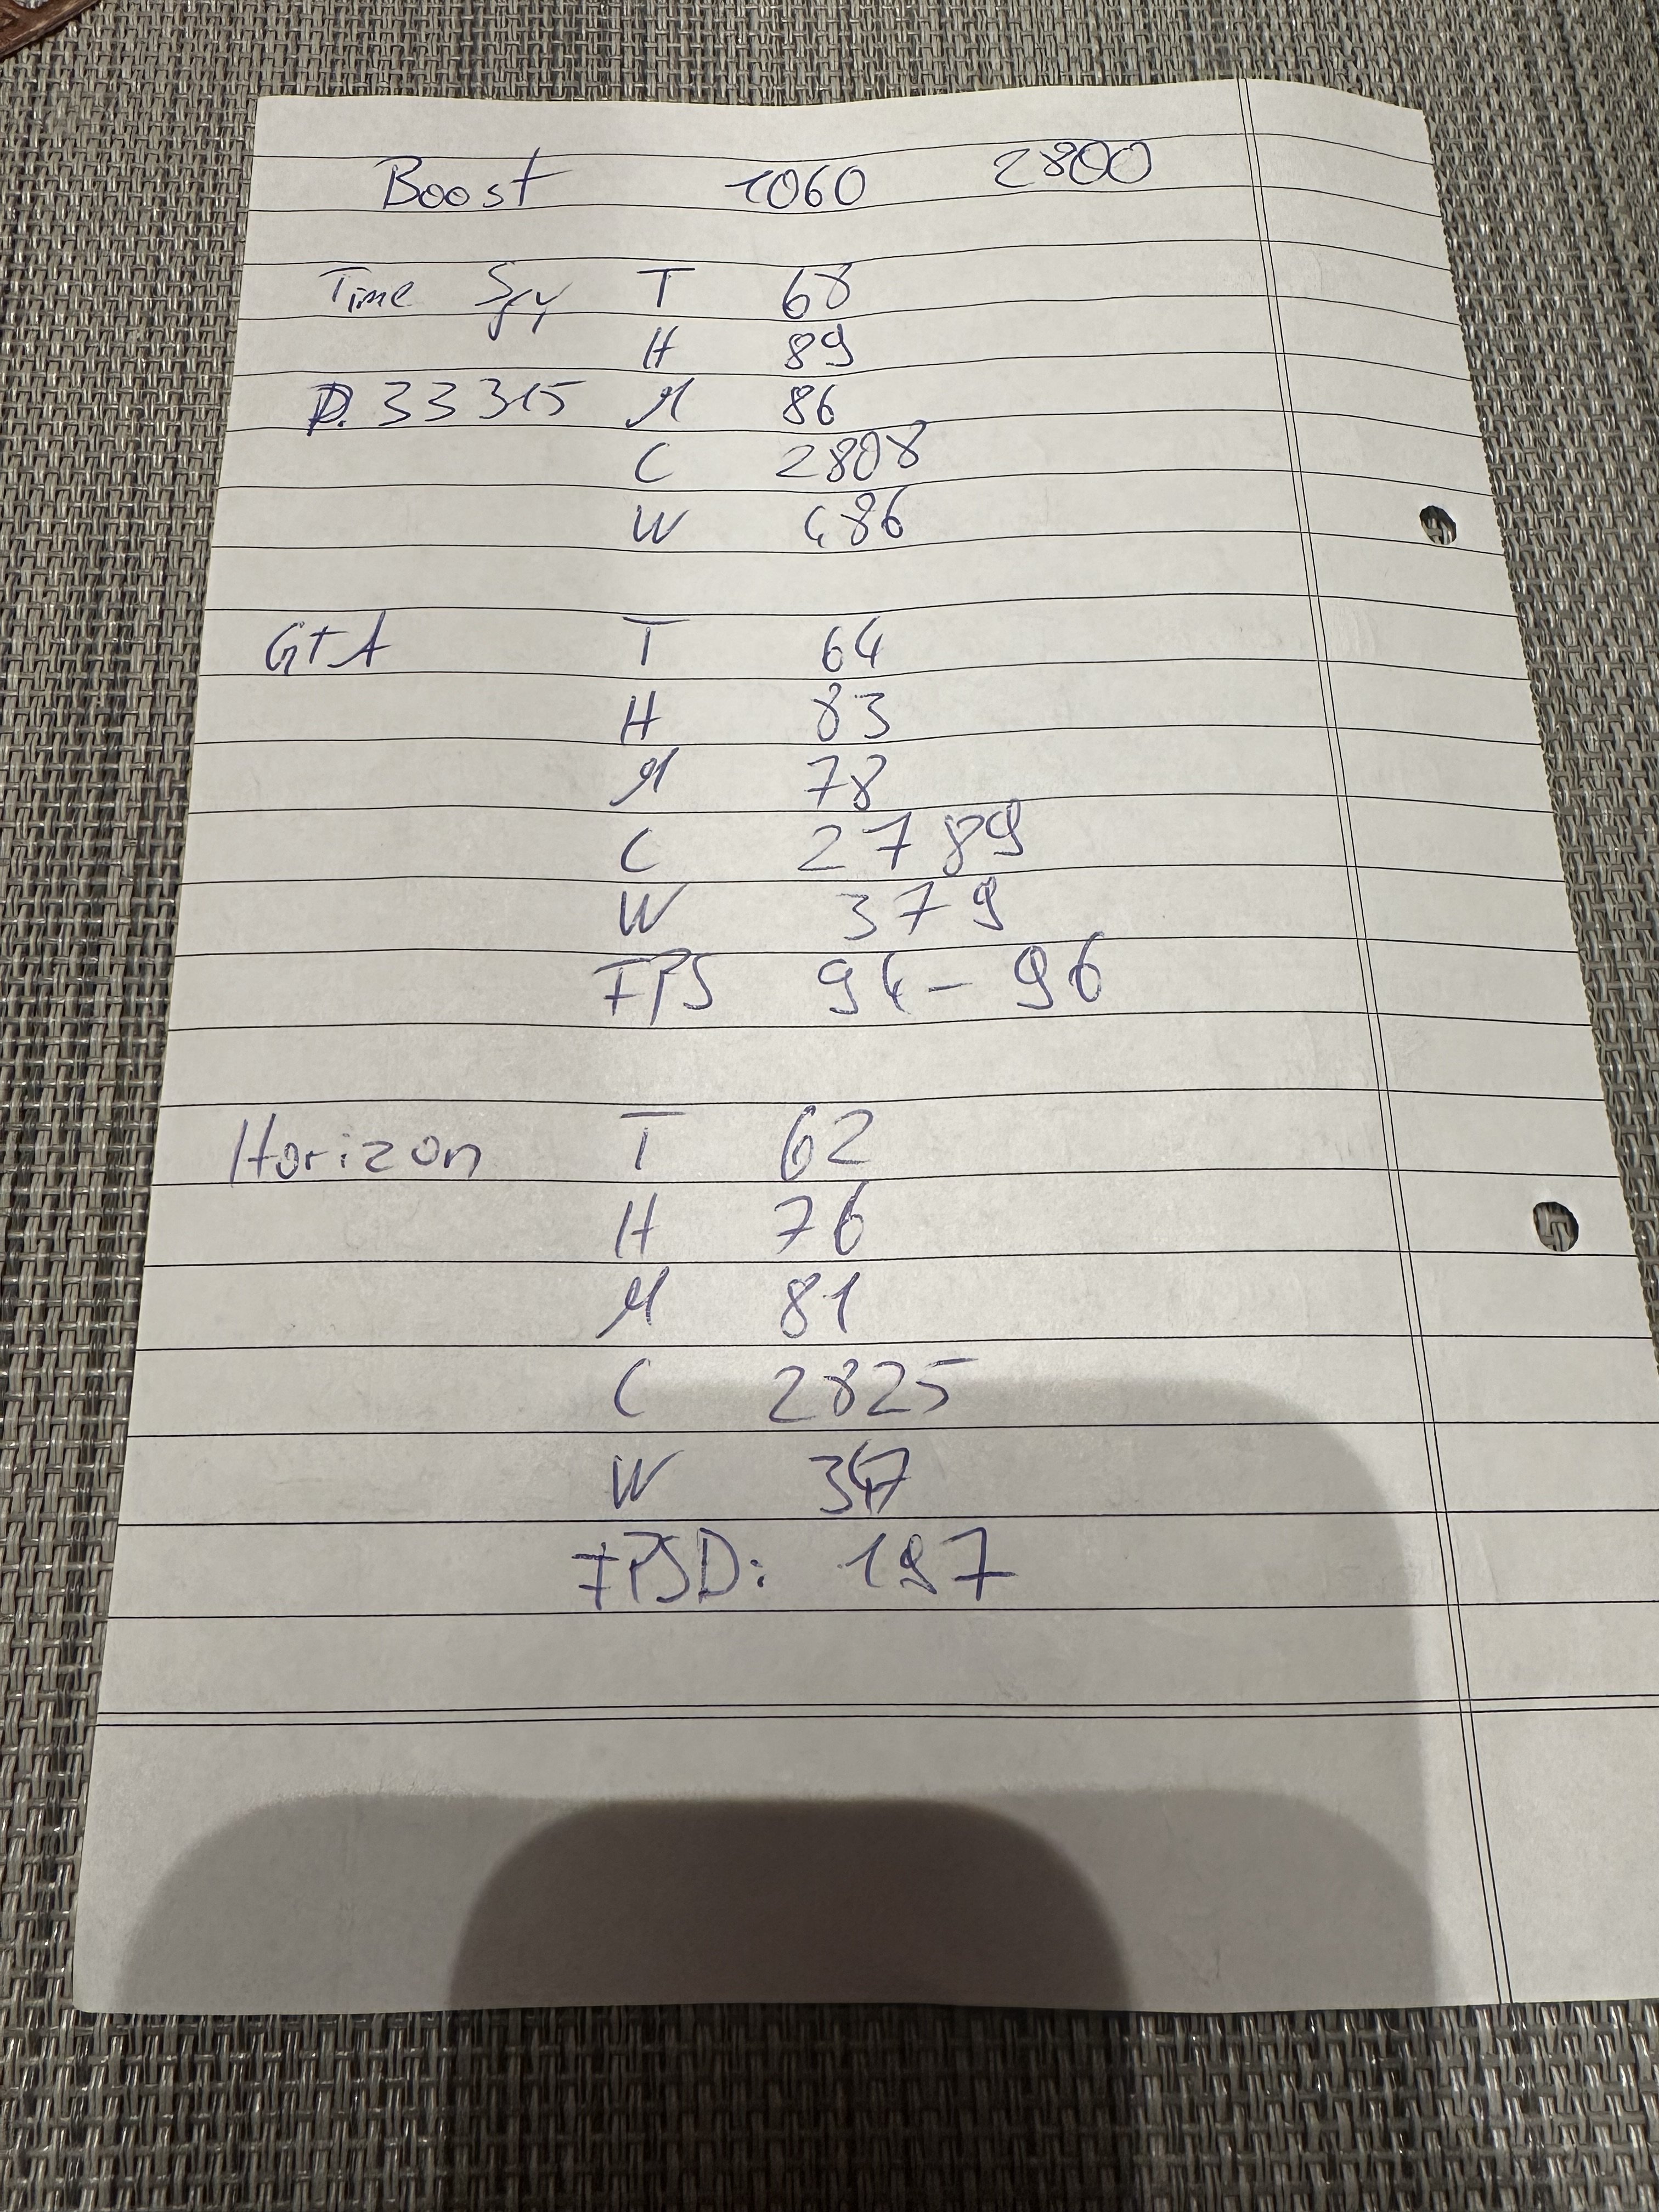 Boost 1060 2800
Time Spy T 68
H 89
P. 33315 M 86
C 2808
W 486
GTA T 64
H 83
M 78
C 2789
W 379
FPS 94 - 96
Horizon T 62
H 76
M 81
C 2825
W 347
FPSD: 197